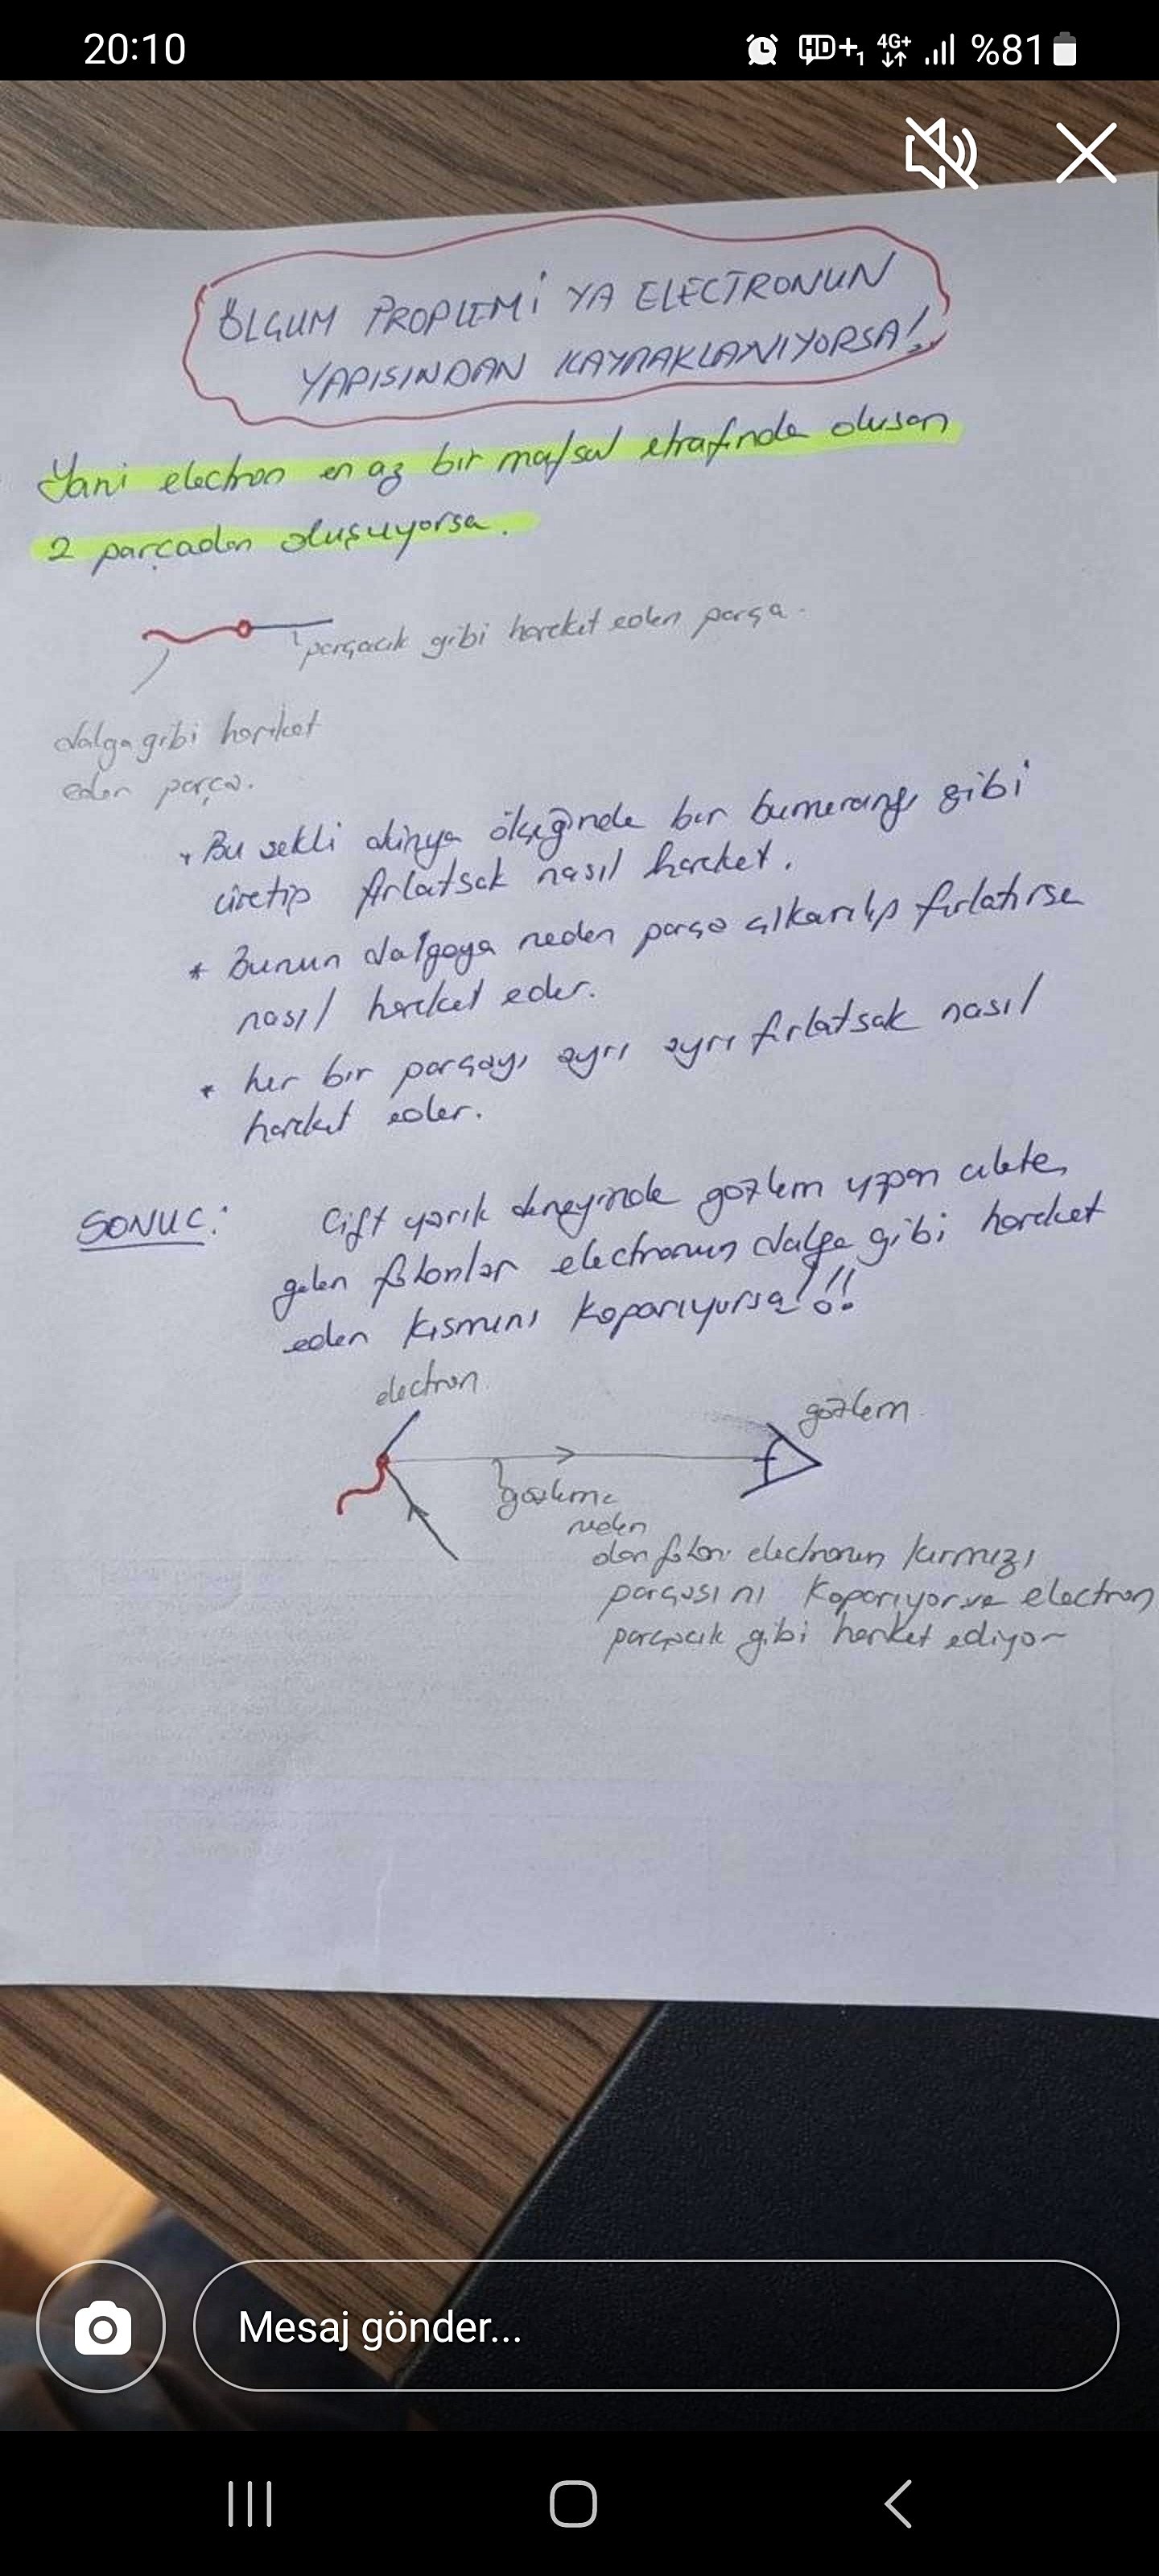 20:10
HD+1 4G+ %81
ÖLÇUM PROPLEMİ YA ELECTRONUN
YAPISINDAN KAYNAKLANIYORSA!..
Yani electron en az bir mafsal etrafında olusan
2 parçadan oluşuyorsa.
parçacık gibi hareket eden parça.
dalga gibi hareket
eden parça.
* Bu sekli dünya ölçeğinde bir bumerang gibi
üretip fırlatsak nasıl hareket.
* Bunun dalgaya neden parça çıkarılıp fırlatırsa
nasıl hareket eder.
* her bir parçayı ayrı ayrı fırlatsak nasıl
hareket eder.
SONUC: Çift yarık deneyinde gozlem yapan alete,
gelen fotonlar electronun dalga gibi hareket
eden kısmını koparıyorsa!!!
electron
gözlem
gözleme
neden
olan foton electronun kırmızı
parçasını koparıyor ve electron
parçacık gibi hareket ediyor
Mesaj gönder...